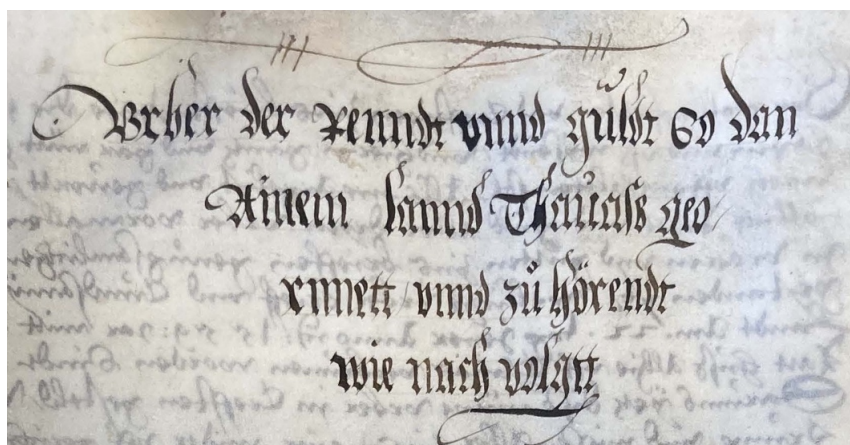 Urber der Renndt vnnd güldt So dan
Ainem lannd Thauafs geo/
rnnett / vnnd zů hörendt
wie nach volgtt